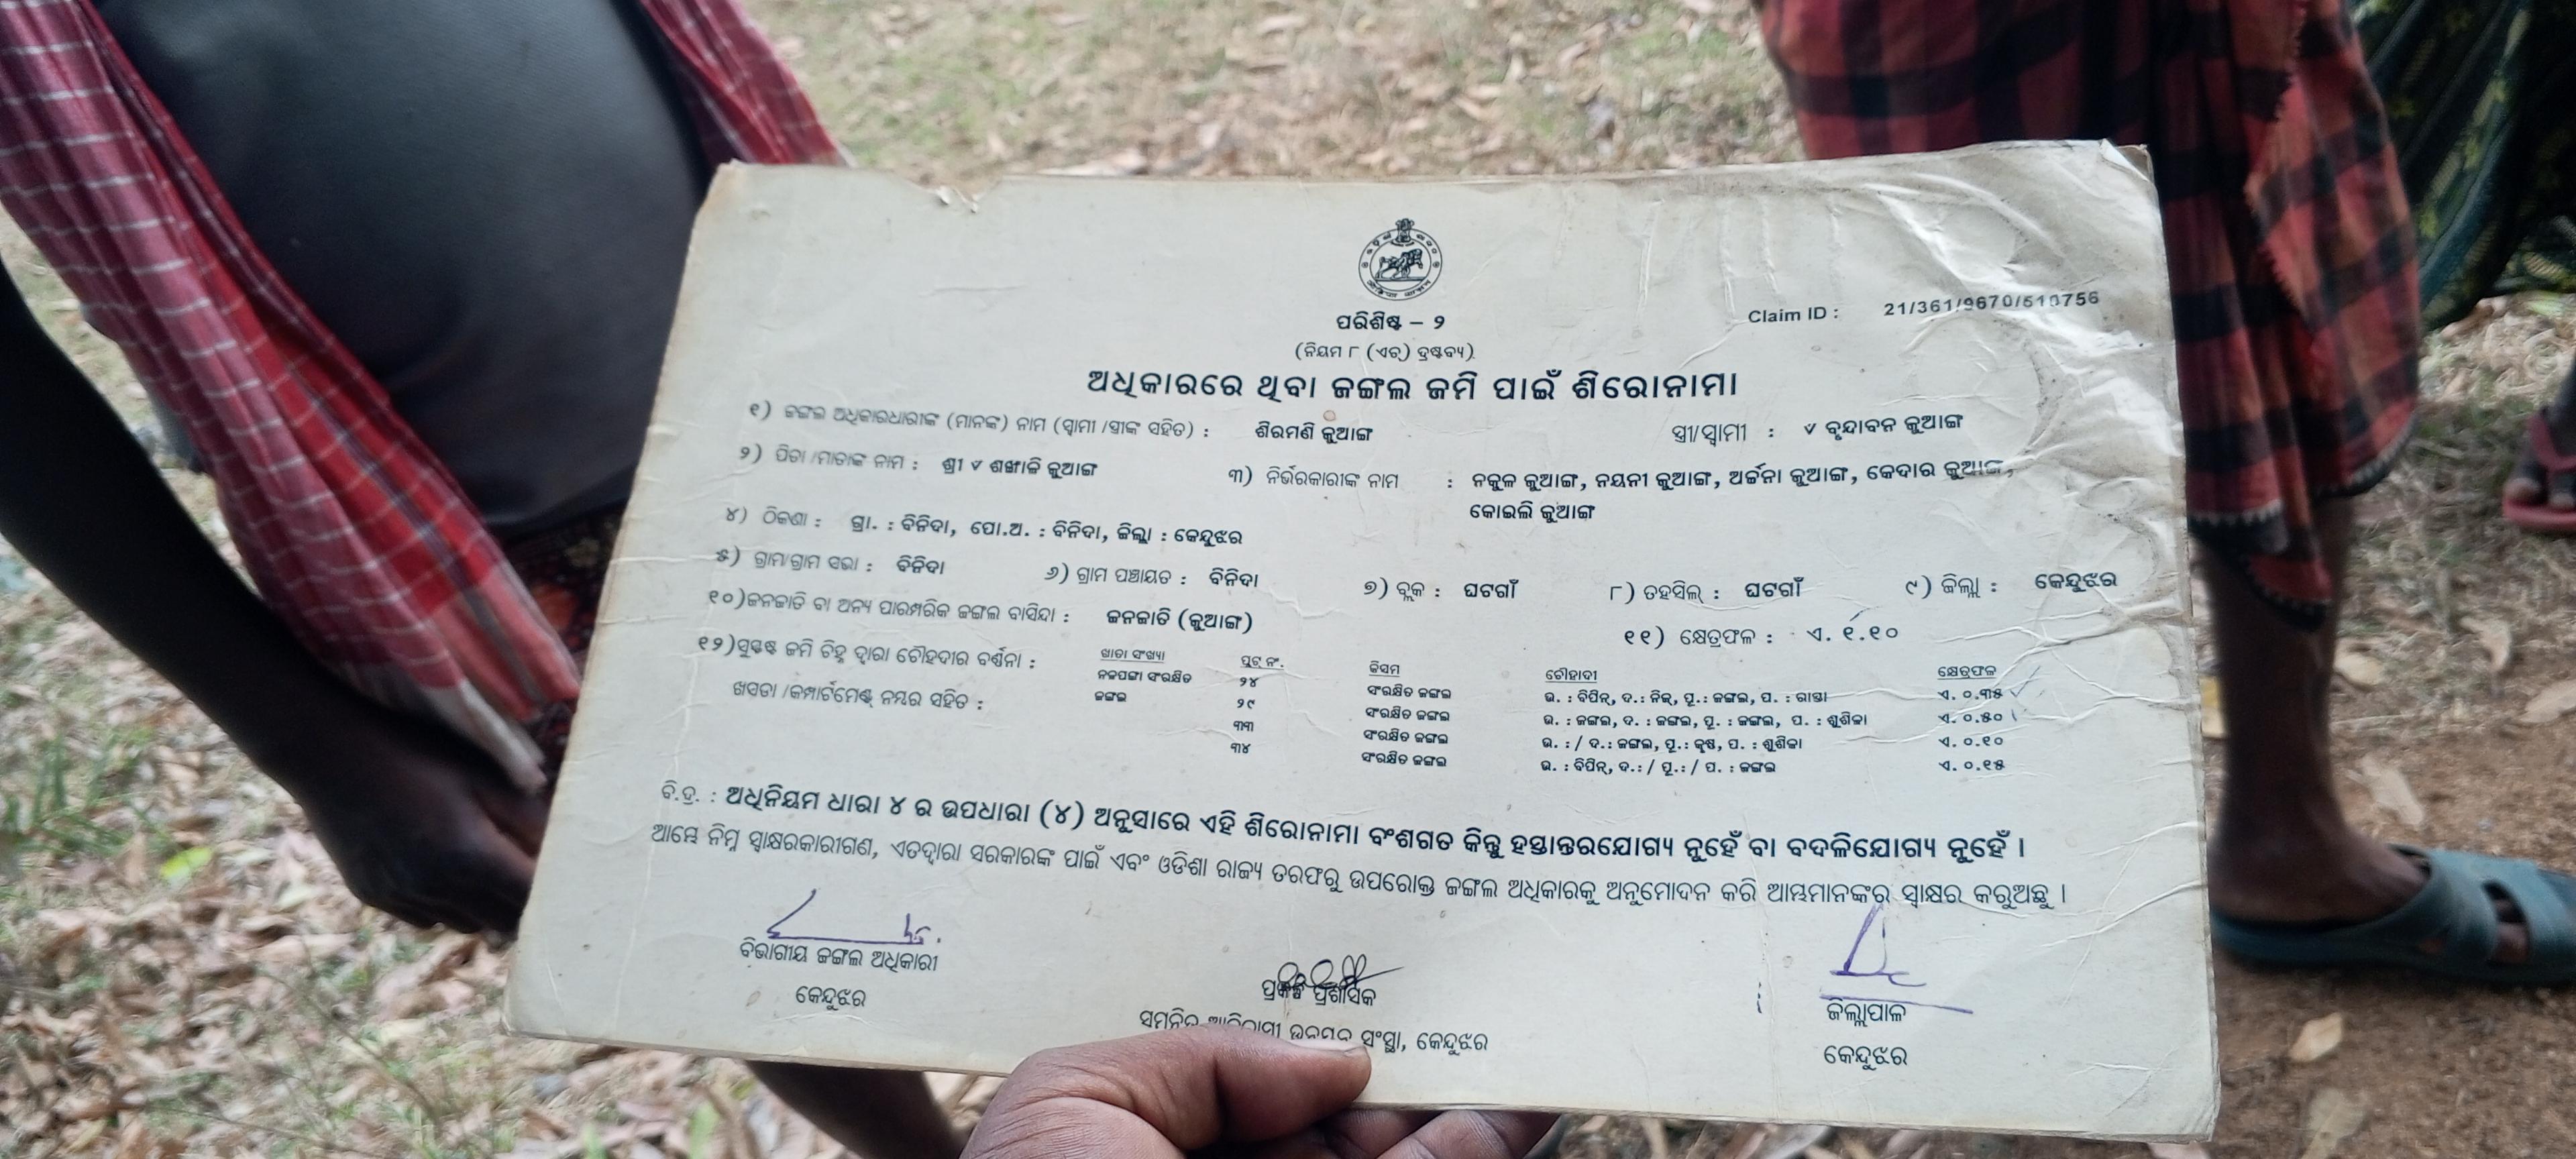 ପରିଶିଷ୍ଟ – ୨
Claim ID : 21/361/9670/510756
(ନିୟମ ୮ (ଏଚ୍) ଦ୍ରଷ୍ଟବ୍ୟ)
ଅଧିକାରରେ ଥିବା ଜଙ୍ଗଲ ଜମି ପାଇଁ ଶିରୋନାମା
୧) ଜଙ୍ଗଲ ଅଧିକାରଧାରୀଙ୍କ (ମାନଙ୍କ) ନାମ (ସ୍ୱାମୀ /ସ୍ତ୍ରୀଙ୍କ ସହିତ) : ଶିରମଣି ଜୁଆଙ୍ଗ ସ୍ତ୍ରୀ/ସ୍ୱାମୀ : ୰ ବୃନ୍ଦାବନ ଜୁଆଙ୍ଗ
୨) ପିତା /ମାତାଙ୍କ ନାମ : ଶ୍ରୀ ୰ ଜୁଆଙ୍ଗ ୩) ନିର୍ଭରକାରୀଙ୍କ ନାମ : ନକୁଳ ଜୁଆଙ୍ଗ, ନୟନୀ ଜୁଆଙ୍ଗ, ଅର୍ଚ୍ଚନା ଜୁଆଙ୍ଗ, କେଦାର ଜୁଆଙ୍ଗ,
କୋଇଲି ଜୁଆଙ୍ଗ
୪) ଠିକଣା : ଗ୍ରା. : ବିନିଦା, ପୋ.ଅ. : ବିନିଦା, ଜିଲ୍ଲା : କେନ୍ଦୁଝର
୫) ଗ୍ରାମ/ଗ୍ରାମ ସଭା : ବିନିଦା ୬) ଗ୍ରାମ ପଞ୍ଚାୟତ : ବିନିଦା ୭) ବ୍ଲକ : ଘଟଗାଁ ୮) ତହସିଲ୍ : ଘଟଗାଁ ୯) ଜିଲ୍ଲା : କେନ୍ଦୁଝର
୧୦) ଜନଜାତି ବା ଅନ୍ୟ ପାରମ୍ପରିକ ଜଙ୍ଗଲ ବାସିନ୍ଦା : ଜନଜାତି (ଜୁଆଙ୍ଗ) ୧୧) କ୍ଷେତ୍ରଫଳ : ଏ. ୧.୧୦
୧୨) ସୁସ୍ପଷ୍ଟ ଜମି ଚିହ୍ନ ଦ୍ୱାରା ଚୌହଦୀର ବର୍ଣ୍ଣନା : ଖାତା ସଂଖ୍ୟା ପ୍ଲଟ୍ ନଂ. କିସମ ଚୌହାଦୀ କ୍ଷେତ୍ରଫଳ
ଖସଡା /କମ୍ପାର୍ଟମେଣ୍ଟ ନମ୍ବର ସହିତ : ସଂରକ୍ଷିତ ୨୪ ସଂରକ୍ଷିତ ଜଙ୍ଗଲ ଉ. : ବିପିନ୍, ଦ.: ନିଜ୍, ପୂ.: ଜଙ୍ଗଲ, ପ. : ରାସ୍ତା ଏ. ୦.୩୫
ଜଙ୍ଗଲ ୨୯ ସଂରକ୍ଷିତ ଜଙ୍ଗଲ ଉ. : ଜଙ୍ଗଲ, ଦ. : ଜଙ୍ଗଲ, ପୂ. : ଜଙ୍ଗଲ, ପ. : ଶୁଶିଳା ଏ. ୦.୫୦
୩୩ ସଂରକ୍ଷିତ ଜଙ୍ଗଲ ଉ. : / ଦ.: ଜଙ୍ଗଲ, ପୂ.: କୃଷ, ପ. : ଶୁଶିଳା ଏ. ୦.୧୦
୩୪ ସଂରକ୍ଷିତ ଜଙ୍ଗଲ ଉ. : ବିପିନ୍, ଦ.: / ପୂ.: / ପ. : ଜଙ୍ଗଲ ଏ. ୦.୧୫
ବି.ଦ୍ର. : ଅଧିନିୟମ ଧାରା ୪ ର ଉପଧାରା (୪) ଅନୁସାରେ ଏହି ଶିରୋନାମା ବଂଶଗତ କିନ୍ତୁ ହସ୍ତାନ୍ତରଯୋଗ୍ୟ ନୁହେଁ ବା ବଦଳିଯୋଗ୍ୟ ନୁହେଁ ।
ଆମ୍ଭେ ନିମ୍ନ ସ୍ୱାକ୍ଷରକାରୀଗଣ, ଏତଦ୍ୱାରା ସରକାରଙ୍କ ପାଇଁ ଏବଂ ଓଡିଶା ରାଜ୍ୟ ତରଫରୁ ଉପରୋକ୍ତ ଜଙ୍ଗଲ ଅଧିକାରକୁ ଅନୁମୋଦନ କରି ଆମ୍ଭମାନଙ୍କର ସ୍ୱାକ୍ଷର କରୁଅଛୁ ।
ବିଭାଗୀୟ ଜଙ୍ଗଲ ଅଧିକାରୀ
କେନ୍ଦୁଝର
ପ୍ରକଳ୍ପ ପ୍ରଶାସକ
ସଂସ୍ଥା, କେନ୍ଦୁଝର
ଜିଲ୍ଲାପାଳ
କେନ୍ଦୁଝର